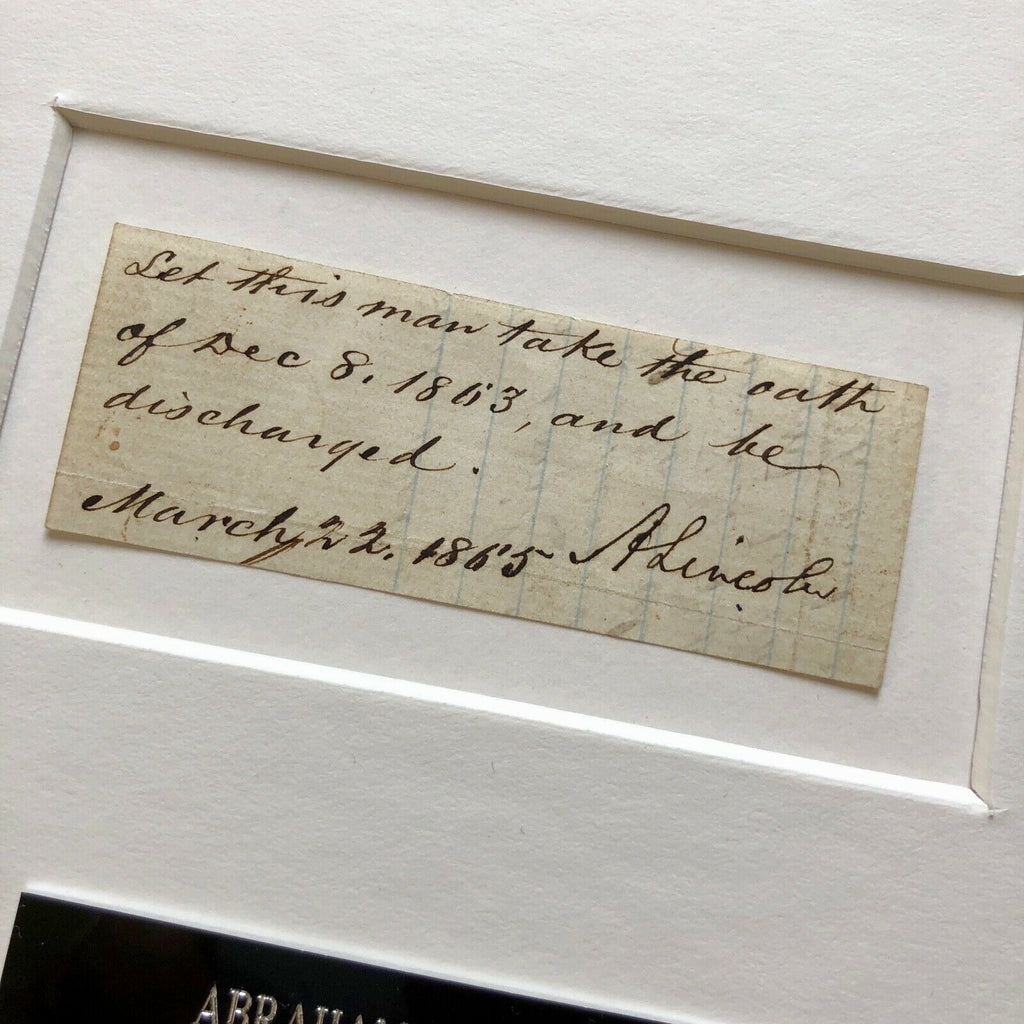 Let this man take the oath
of Dec 8. 1863, and be
discharged.
March 22. 1865 A Lincoln
ABRAHAM